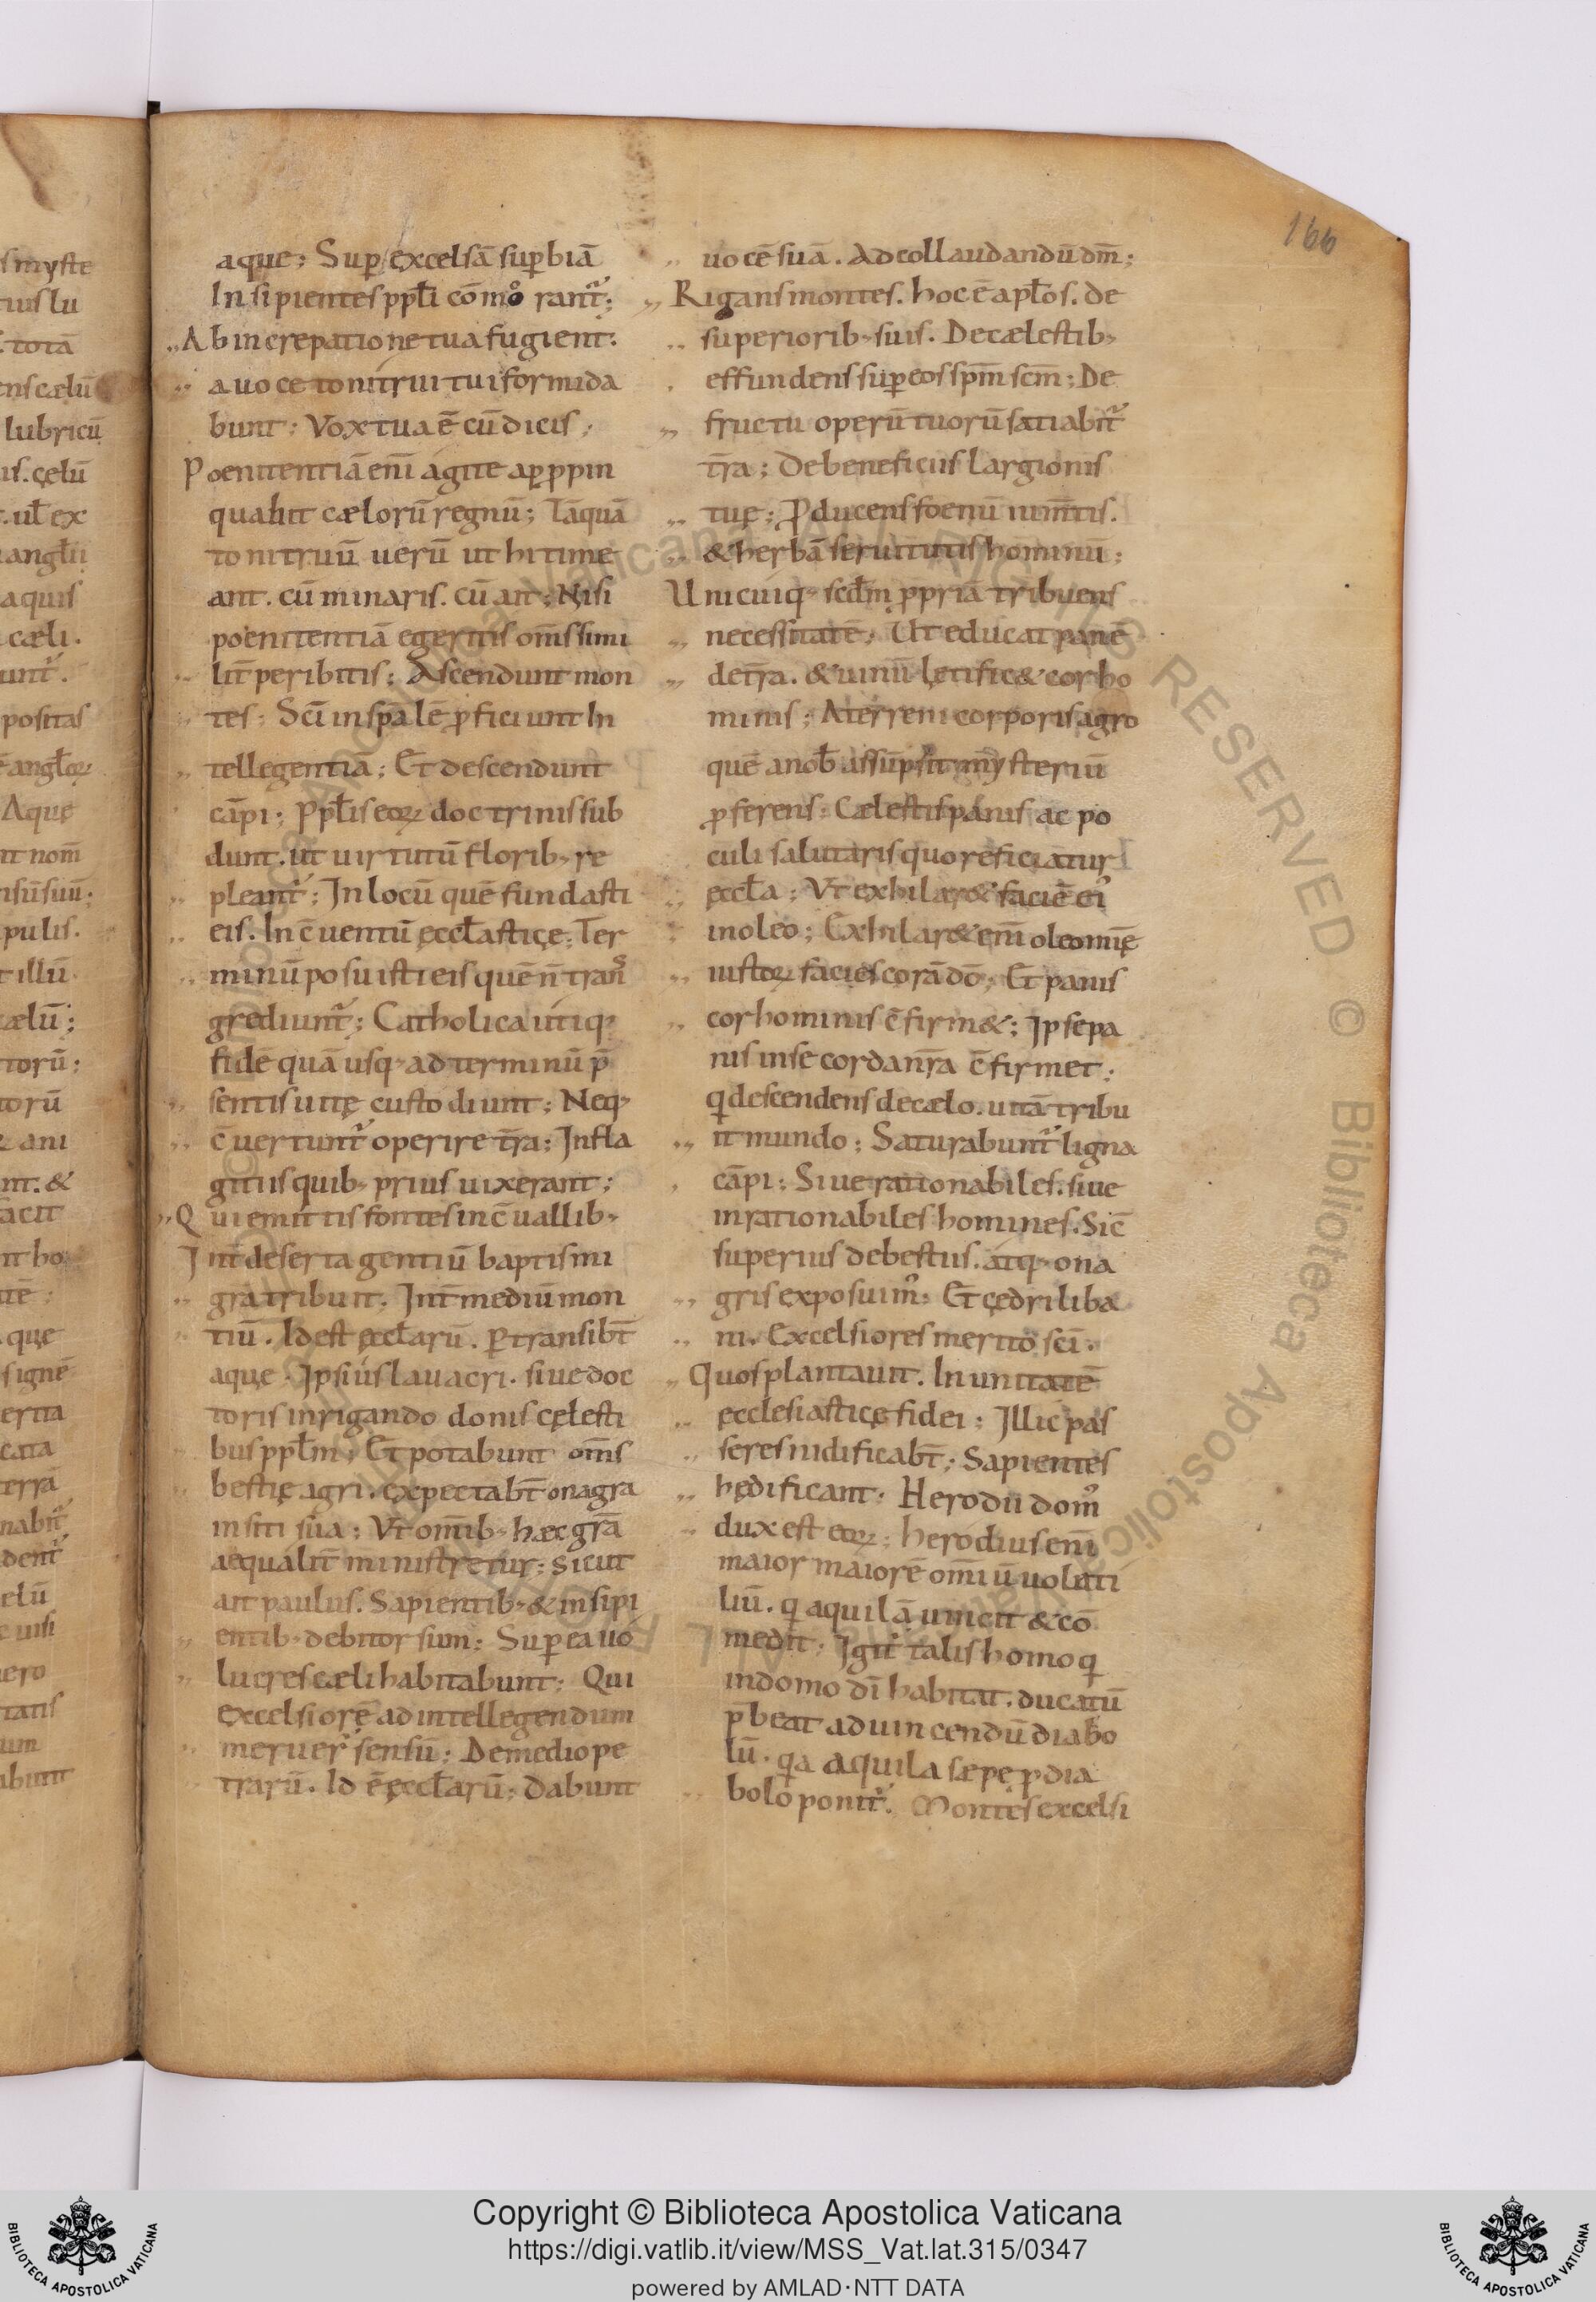 166
aque; Sup excelsā supbiā
Insipientes ppl̄i cōmorant᷑;
Ab increpatione tua fugient.
a uoce tonitrui tui formida
bunt; Vox tua ē cū dicis;
Poenitentiā enī agite apppin
quabit cælorū regnū; Tāquā
tonitruū uerū ut hi time
ant. cū minaris. cū ait; Nisi
poenitentiā egeritis om̄s simi
lit̄ peribitis; Ascendunt mon
tes; Sc̄i in spālē pficiunt In
tellegentiā; Et descendunt
cāpi; Ppl̄is eoꝝ doctrinis sub
dunt. ut uirtutū florib; re
pleant᷑; In locū quē fundasti
eis. In c̄uentū ęccl̄asticę; Ter
minū posuisti eis quē n̄ trans
grediunt᷑; Catholica utiq;
fidē quā usq; ad terminū p̄
sentis uitę custodiunt; Neq;
c̄uertunt᷑ operire t̄ra; In fla
gitiis quib; prius uixerant;
Qui emittis fontes in c̄uallib;
In deserta gentiū baptismi
grā tribuit. Int̄ mediū mon
tiū. Id est ęccl̄arū. ptransibt̄
aquę. Ipsius lauacri. siue doc
toris inrigando donis cęlesti
bus ppl̄m; Et potabunt om̄s
bestię agri. expectabt̄ onagra
in siti sua; Vt om̄ib; hæc grā
aequalit̄ ministretur; sicut
ait paulus. Sapientib; & insipi
entib; debitor sum; Sup ea uo
lucres cæli habitabunt; Qui
excelsiorē ad intellegendum
meruer᷑ sensū; De medio pe
trarū. Id ē ęccl̄arū; Dabunt
uocē suā. Ad collaudandū dm̄;
Rigans montes. hoc ē apl̄os. de
superiorib; suis. De cælestib;
effundens sup eos sp̄m sc̄m; De
fructu operū tuorū satiabit᷑
t̄ra; De beneficiis largionis
tuę; Pducens foenū ium̄tis.
& herbā seruituti hominū;
Unicuiq; scd̄m ppriā tribuens
necessitatē; Ut educat panē
de t̄ra. & uinū lętific& cor ho
minis; A terreni corporis agro
quē a nob̄ assūpsit mysteriū
pferens; Cælestis panis ac po
culi salutaris quo reficiatur
ęccl̄a; Vt exhilar& faciē ei᷒
in oleo; Exhilar& enī oleo mīę
iustoꝝ facies corā dō; Et panis
cor hominis c̄firm&; Ipse pa
nis in se corda n̄ra c̄firmet;
q̄ descendens de cælo. uitā tribu
it mundo; Saturabunt᷑ ligna
cāpi; Siue rationabiles. siue
inrationabiles homines. Sic̄
superius de bestiis. atq; ona
gris exposuim᷒; Et cędri liba
ni. Excelsiores merito sc̄i.
Quos plantauit. In unitatē
ecclesiasticę fidei; Illic pas
seres nidificabt̄; Sapientes
hędificant; Herodii dom᷒
dux est eoꝝ; herodius enī
maior maiorē om̄iū uolati
liū. q̄ aquilā uincit & cō
medit; Igit᷑ talis homo q̄
in domo dī habitat. ducatū
p̄beat ad uincendū diabo
lū. q̄a aquila sæpę p dia
bolo ponit᷑. Montes excelsi
s myste
tius lu
totā
ens cælū
lubricū
is. cęlū
ul̄ ex
angl̄ii
aquis
cæli.
unt᷑.
positas
ē angl̄oꝝ
Aquę
it nom̄
pulis.
illū.
ælū;
torū;
torū
ani
nt. &
facit
nt ho
que
signē
ertia
cata
terrā
nabit᷑
dent᷑
elū
uisi
ero
tatis
um
abunt
Copyright © Biblioteca Apostolica Vaticana
https://digi.vatlib.it/view/MSS_Vat.lat.315/0347
powered by AMLAD·NTT DATA
BIBLIOTECA APOSTOLICA VATICANA
BIBLIOTECA APOSTOLICA VATICANA